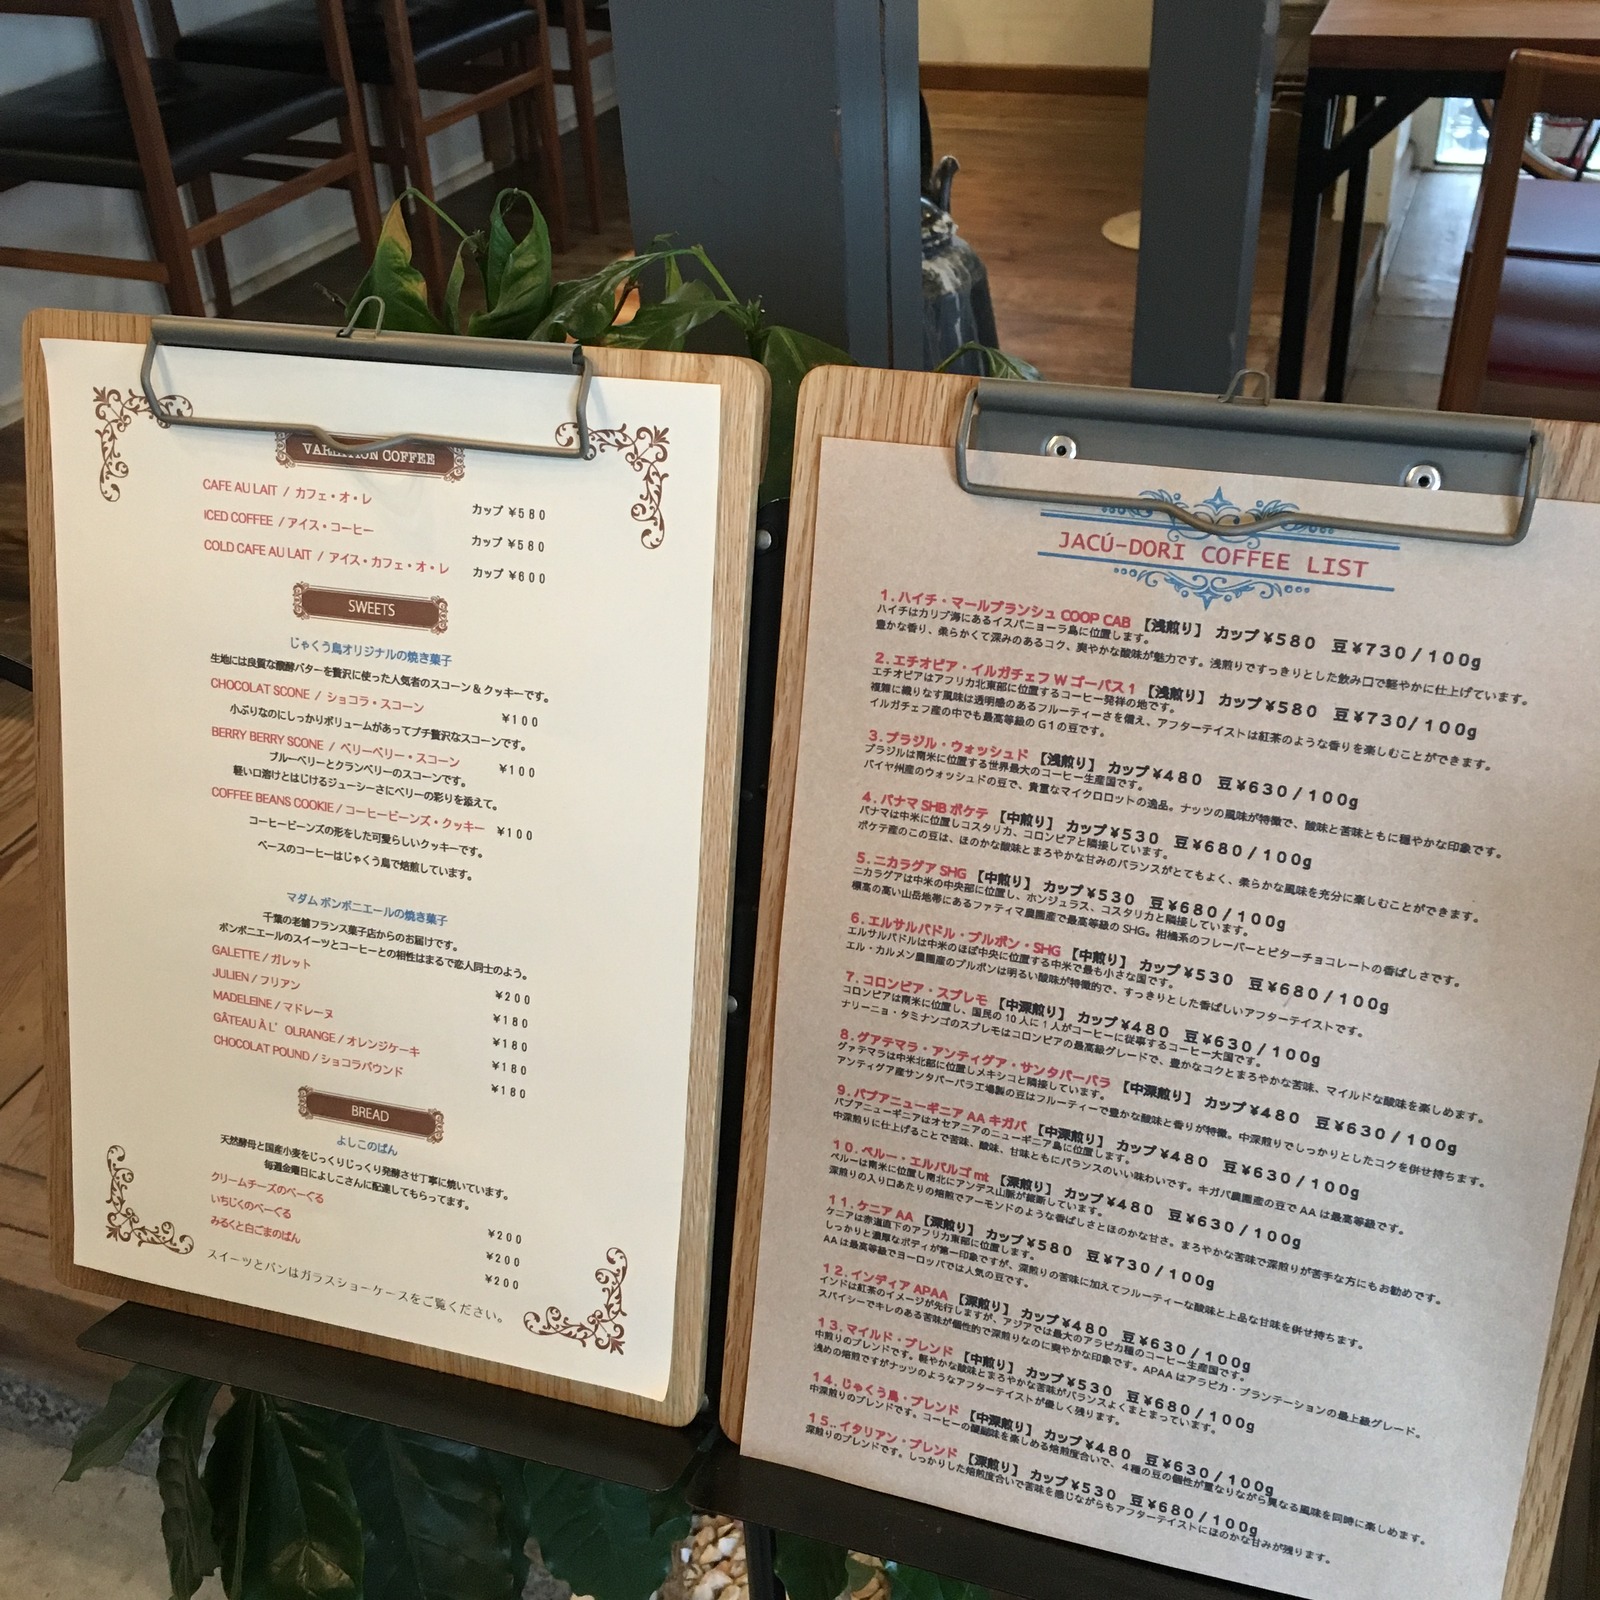 VARIATION COFFEE
CAFE AU LAIT / カフェ・オ・レ
カップ ¥580
ICED COFFEE / アイス・コーヒー
カップ ¥580
COLD CAFE AU LAIT / アイス・カフェ・オ・レ
カップ ¥600
SWEETS
じゃくう鳥オリジナルの焼き菓子
生地には良質な醗酵バターを贅沢に使った人気者のスコーン & クッキーです。
CHOCOLAT SCONE / ショコラ・スコーン
¥100
小ぶりなのにしっかりボリュームがあってプチ贅沢なスコーンです。
BERRY BERRY SCONE / ベリーベリー・スコーン
¥100
ブルーベリーとクランベリーのスコーンです。
軽い口溶けとはじけるジューシーさにベリーの彩りを添えて。
COFFEE BEANS COOKIE / コーヒービーンズ・クッキー ¥100
コーヒービーンズの形をした可愛らしいクッキーです。
ベースのコーヒーはじゃくう鳥で焙煎しています。
マダム ボンボニエールの焼き菓子
千葉の老舗フランス菓子店からのお届けです。
ボンボニエールのスイーツとコーヒーとの相性はまるで恋人同士のよう。
GALETTE / ガレット
¥200
JULIEN / フリアン
¥180
MADELEINE / マドレーヌ
¥180
GÂTEAU À L' OLRANGE / オレンジケーキ
¥180
CHOCOLAT POUND / ショコラパウンド
¥180
BREAD
よしこのぱん
天然酵母と国産小麦をじっくりじっくり発酵させ丁寧に焼いています。
毎週金曜日によしこさんに配達してもらってます。
クリームチーズのべーぐる
¥200
いちじくのべーぐる
¥200
みるくと白ごまのぱん
¥200
スイーツとパンはガラスショーケースをご覧ください。
JACÚ-DORI COFFEE LIST
1. ハイチ・マールブランシュ COOP CAB 【浅煎り】 カップ ¥580 豆 ¥730 / 100g
ハイチはカリブ海にあるイスパニョーラ島に位置します。
豊かな香り、柔らかくて深みのあるコク、爽やかな酸味が魅力です。浅煎りですっきりとした飲み口で軽やかに仕上げています。
2. エチオピア・イルガチェフ W ゴーパス 1 【浅煎り】 カップ ¥580 豆 ¥730 / 100g
エチオピアはアフリカ北東部に位置するコーヒー発祥の地です。
複雑に織りなす風味は透明感のあるフルーティーさを備え、アフターテイストは紅茶のような香りを楽しむことができます。
イルガチェフ産の中でも最高等級の G1 の豆です。
3. ブラジル・ウォッシュド 【浅煎り】 カップ ¥480 豆 ¥630 / 100g
ブラジルは南米に位置する世界最大のコーヒー生産国です。
バイヤ州産のウォッシュドの豆で、貴重なマイクロロットの逸品。ナッツの風味が特徴で、酸味と苦味ともに穏やかな印象です。
4. パナマ SHB ボケテ 【中煎り】 カップ ¥530 豆 ¥680 / 100g
パナマは中米に位置しコスタリカ、コロンビアと隣接しています。
ボケテ産のこの豆は、ほのかな酸味とまろやかな甘みのバランスがとてもよく、柔らかな風味を充分に楽しむことができます。
5. ニカラグア SHG 【中煎り】 カップ ¥530 豆 ¥680 / 100g
ニカラグアは中米の中央部に位置し、ホンジュラス、コスタリカと隣接しています。
標高の高い山岳地帯にあるファティマ農園産で最高等級の SHG。柑橘系のフレーバーとビターチョコレートの香ばしさです。
6. エルサルバドル・ブルボン・SHG 【中煎り】 カップ ¥530 豆 ¥680 / 100g
エルサルバドルは中米のほぼ中央に位置する中米で最も小さな国です。
エル・カルメン農園産のブルボンは明るい酸味が特徴的で、すっきりとした香ばしいアフターテイストです。
7. コロンビア・スプレモ 【中深煎り】 カップ ¥480 豆 ¥630 / 100g
コロンビアは南米に位置し、国民の 10 人に 1 人がコーヒーに従事するコーヒー大国です。
ナリーニョ・タミナンゴのスプレモはコロンビアの最高級グレードで、豊かなコクとまろやかな苦味、マイルドな酸味を楽しめます。
8. グアテマラ・アンティグア・サンタバーバラ 【中深煎り】 カップ ¥480 豆 ¥630 / 100g
グァテマラは中米北部に位置しメキシコと隣接しています。
アンティグア産サンタバーバラ工場製の豆はフルーティーで豊かな酸味と香りが特徴。中深煎りでしっかりとしたコクを併せ持ちます。
9. パプアニューギニア AA キガバ 【中深煎り】 カップ ¥480 豆 ¥630 / 100g
パプアニューギニアはオセアニアのニューギニア島に位置します。
中深煎りに仕上げることで苦味、酸味、甘味ともにバランスのいい味わいです。キガバ農園産の豆で AA は最高等級です。
10. ペルー・エルパルゴ mt 【深煎り】 カップ ¥480 豆 ¥630 / 100g
ペルーは南米に位置し南北にアンデス山脈が縦断しています。
深煎りの入り口あたりの焙煎でアーモンドのような香ばしさとほのかな甘さ。まろやかな苦味で深煎りが苦手な方にもお勧めです。
11. ケニア AA 【深煎り】 カップ ¥580 豆 ¥730 / 100g
ケニアは赤道直下のアフリカ東部に位置します。
しっかりと濃厚なボディが第一印象ですが、深煎りの苦味に加えてフルーティーな酸味と上品な甘味を併せ持ちます。
AA は最高等級でヨーロッパでは人気の豆です。
12. インディア APAA 【深煎り】 カップ ¥480 豆 ¥630 / 100g
インドは紅茶のイメージが先行しますが、アジアでは最大のアラビカ種のコーヒー生産国です。
スパイシーでキレのある苦味が個性的で深煎りなのに爽やかな印象です。APAA はアラビカ・プランテーションの最上級グレード。
13. マイルド・ブレンド 【中煎り】 カップ ¥530 豆 ¥680 / 100g
中煎りのブレンドです。軽やかな酸味とまろやかな苦味がバランスよくまとまっています。
浅めの焙煎ですがナッツのようなアフターテイストが優しく残ります。
14. じゃくう鳥・ブレンド 【中深煎り】 カップ ¥480 豆 ¥630 / 100g
中深煎りのブレンドです。コーヒーの醍醐味を楽しめる焙煎度合いで、4 種の豆の個性が重なりながら異なる風味を同時に楽しめます。
15. イタリアン・ブレンド 【深煎り】 カップ ¥530 豆 ¥680 / 100g
深煎りのブレンドです。しっかりした焙煎度合いで苦味を感じながらもアフターテイストにほのかな甘みが残ります。